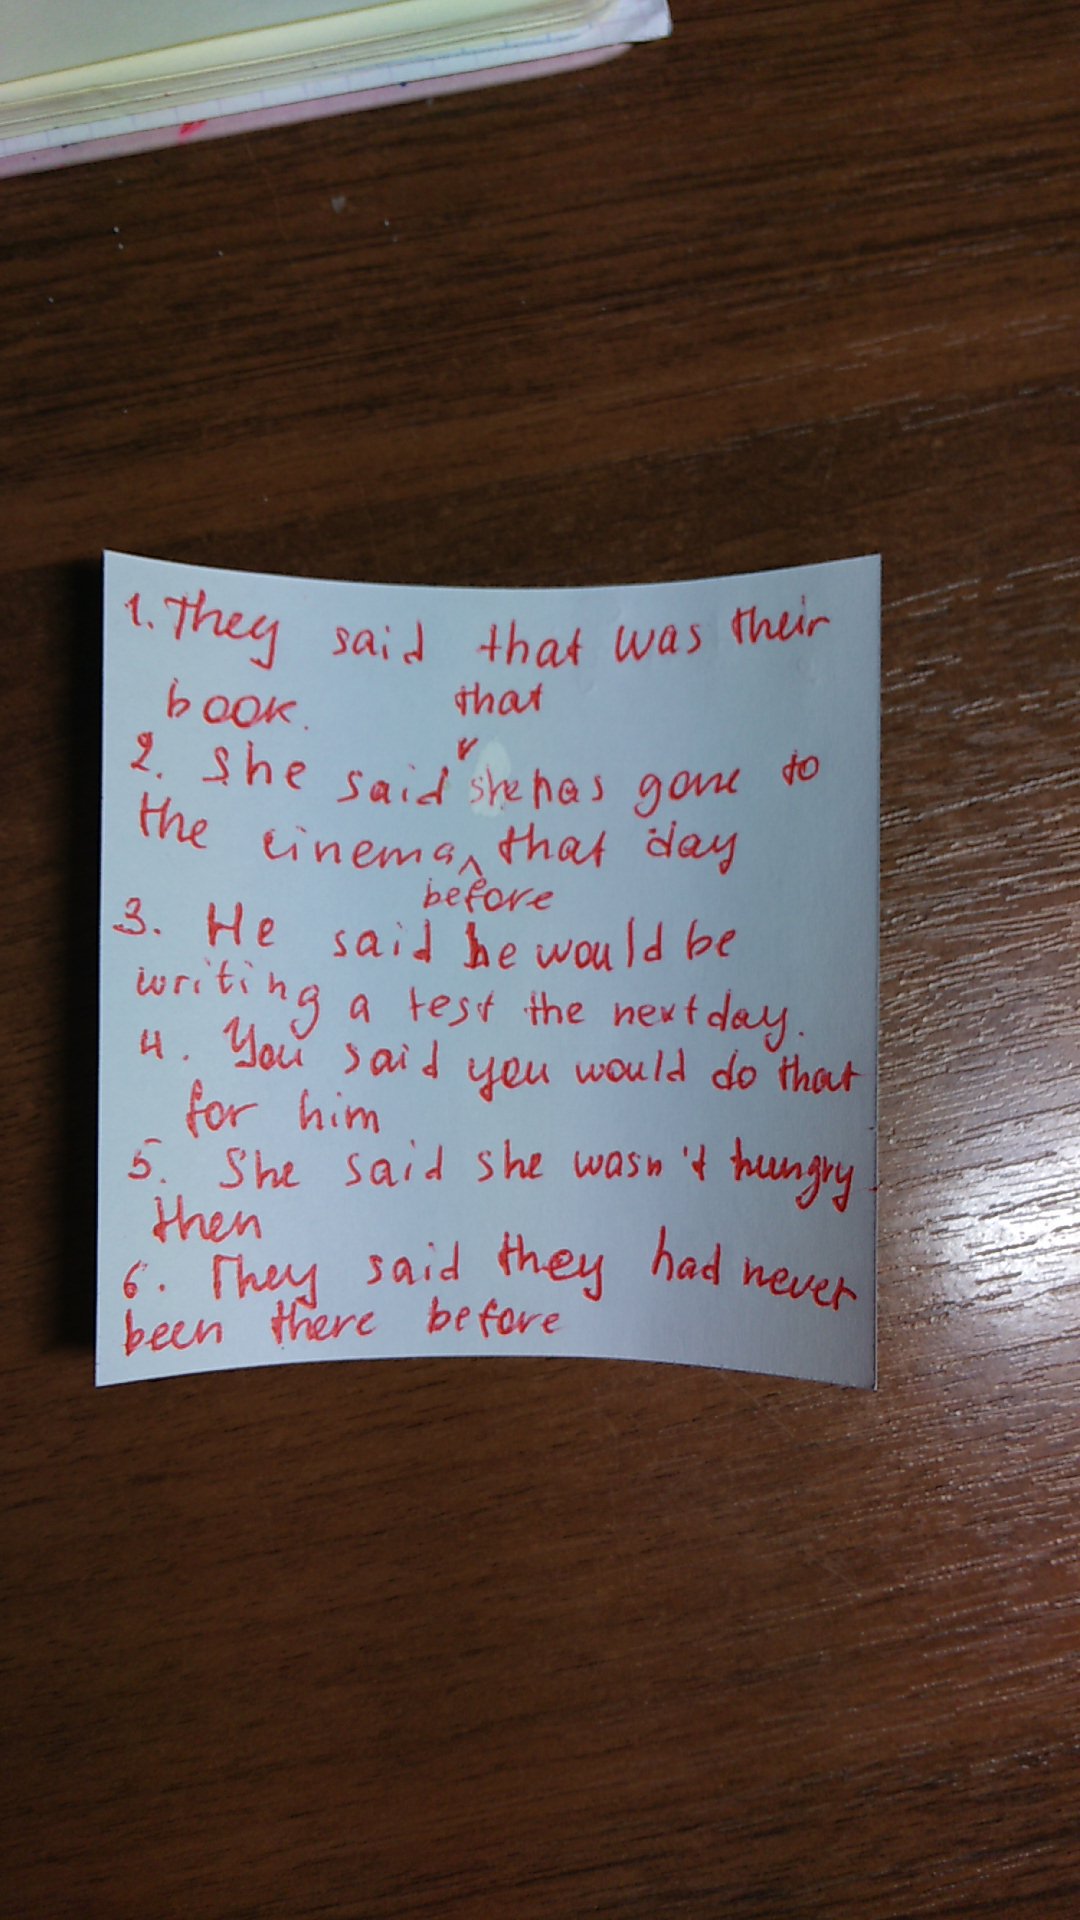 1. They said that was their
book.
that
2. She said she has gone to
the cinema, that day
before
3. He said he would be
writing a test the next day.
4. You said you would do that
for him
5. She said she wasn't hungry
then
6. They said they had never
been there before